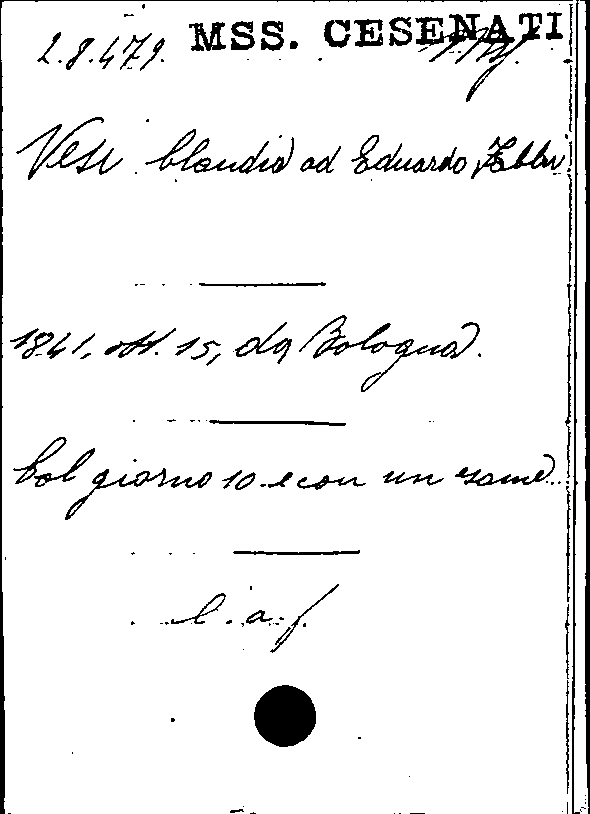 2.8.479. MSS. CESENATI
Vesi Claudia ad Eduardo Fabbri
1841, ott. 15, da Bologna.
Col giorno 10 e con un esame...
l. a. f.